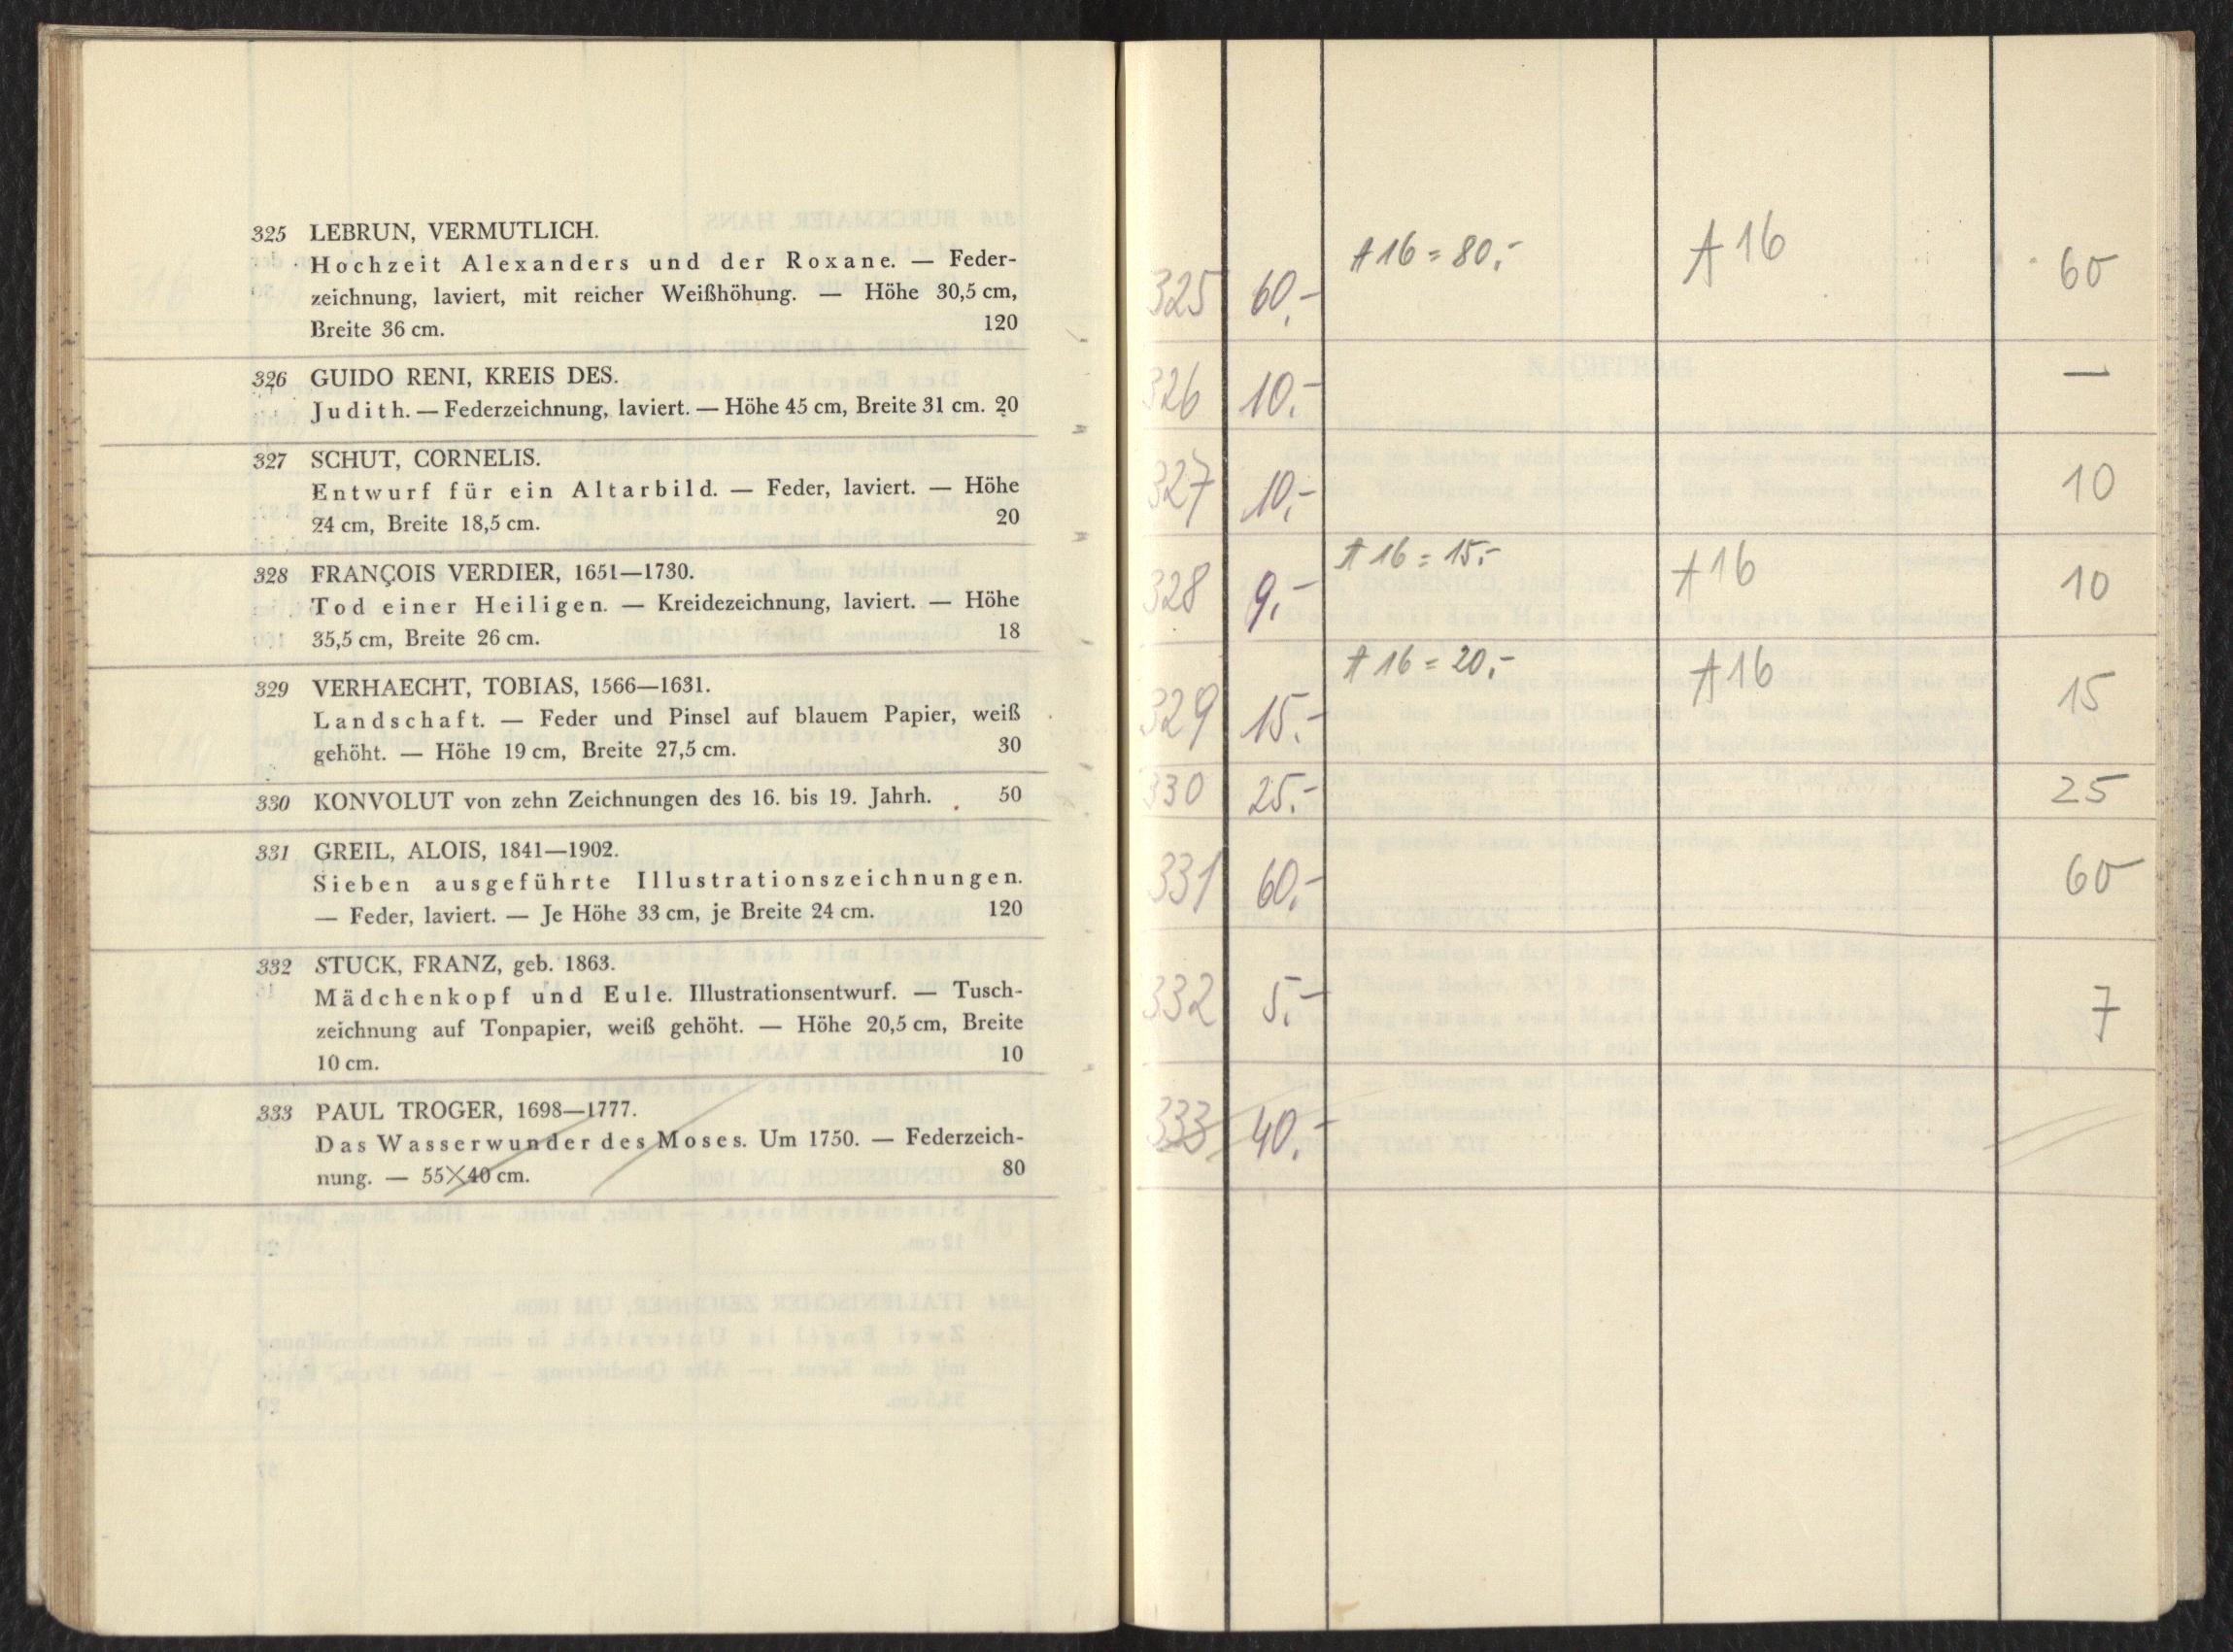 325 LEBRUN, VERMUTLICH.
Hochzeit Alexanders und der Roxane. — Feder-
zeichnung, laviert, mit reicher Weißhöhung. — Höhe 30,5 cm,
Breite 36 cm. 120
326 GUIDO RENI, KREIS DES.
Judith. — Federzeichnung, laviert. — Höhe 45 cm, Breite 31 cm. 20
327 SCHUT, CORNELIS.
Entwurf für ein Altarbild. — Feder, laviert. — Höhe
24 cm, Breite 18,5 cm. 20
328 FRANÇOIS VERDIER, 1651—1730.
Tod einer Heiligen. — Kreidezeichnung, laviert. — Höhe
35,5 cm, Breite 26 cm. 18
329 VERHAECHT, TOBIAS, 1566—1631.
Landschaft. — Feder und Pinsel auf blauem Papier, weiß
gehöht. — Höhe 19 cm, Breite 27,5 cm. 30
330 KONVOLUT von zehn Zeichnungen des 16. bis 19. Jahrh. 50
331 GREIL, ALOIS, 1841—1902.
Sieben ausgeführte Illustrationszeichnungen.
— Feder, laviert. — Je Höhe 33 cm, je Breite 24 cm. 120
332 STUCK, FRANZ, geb. 1863.
Mädchenkopf und Eule. Illustrationsentwurf. — Tusch-
zeichnung auf Tonpapier, weiß gehöht. — Höhe 20,5 cm, Breite
10 cm. 10
333 PAUL TROGER, 1698—1777.
Das Wasserwunder des Moses. Um 1750. — Federzeich-
nung. — 55×40 cm. 80
325 60,- A 16 = 80,- A 16 60
326 10,- —
327 10,- 10
328 9,- A 16 = 15,- A 16 10
329 15,- A 16 = 20,- A 16 15
330 25,- 25
331 60,- 60
332 5,- 7
333 40,-